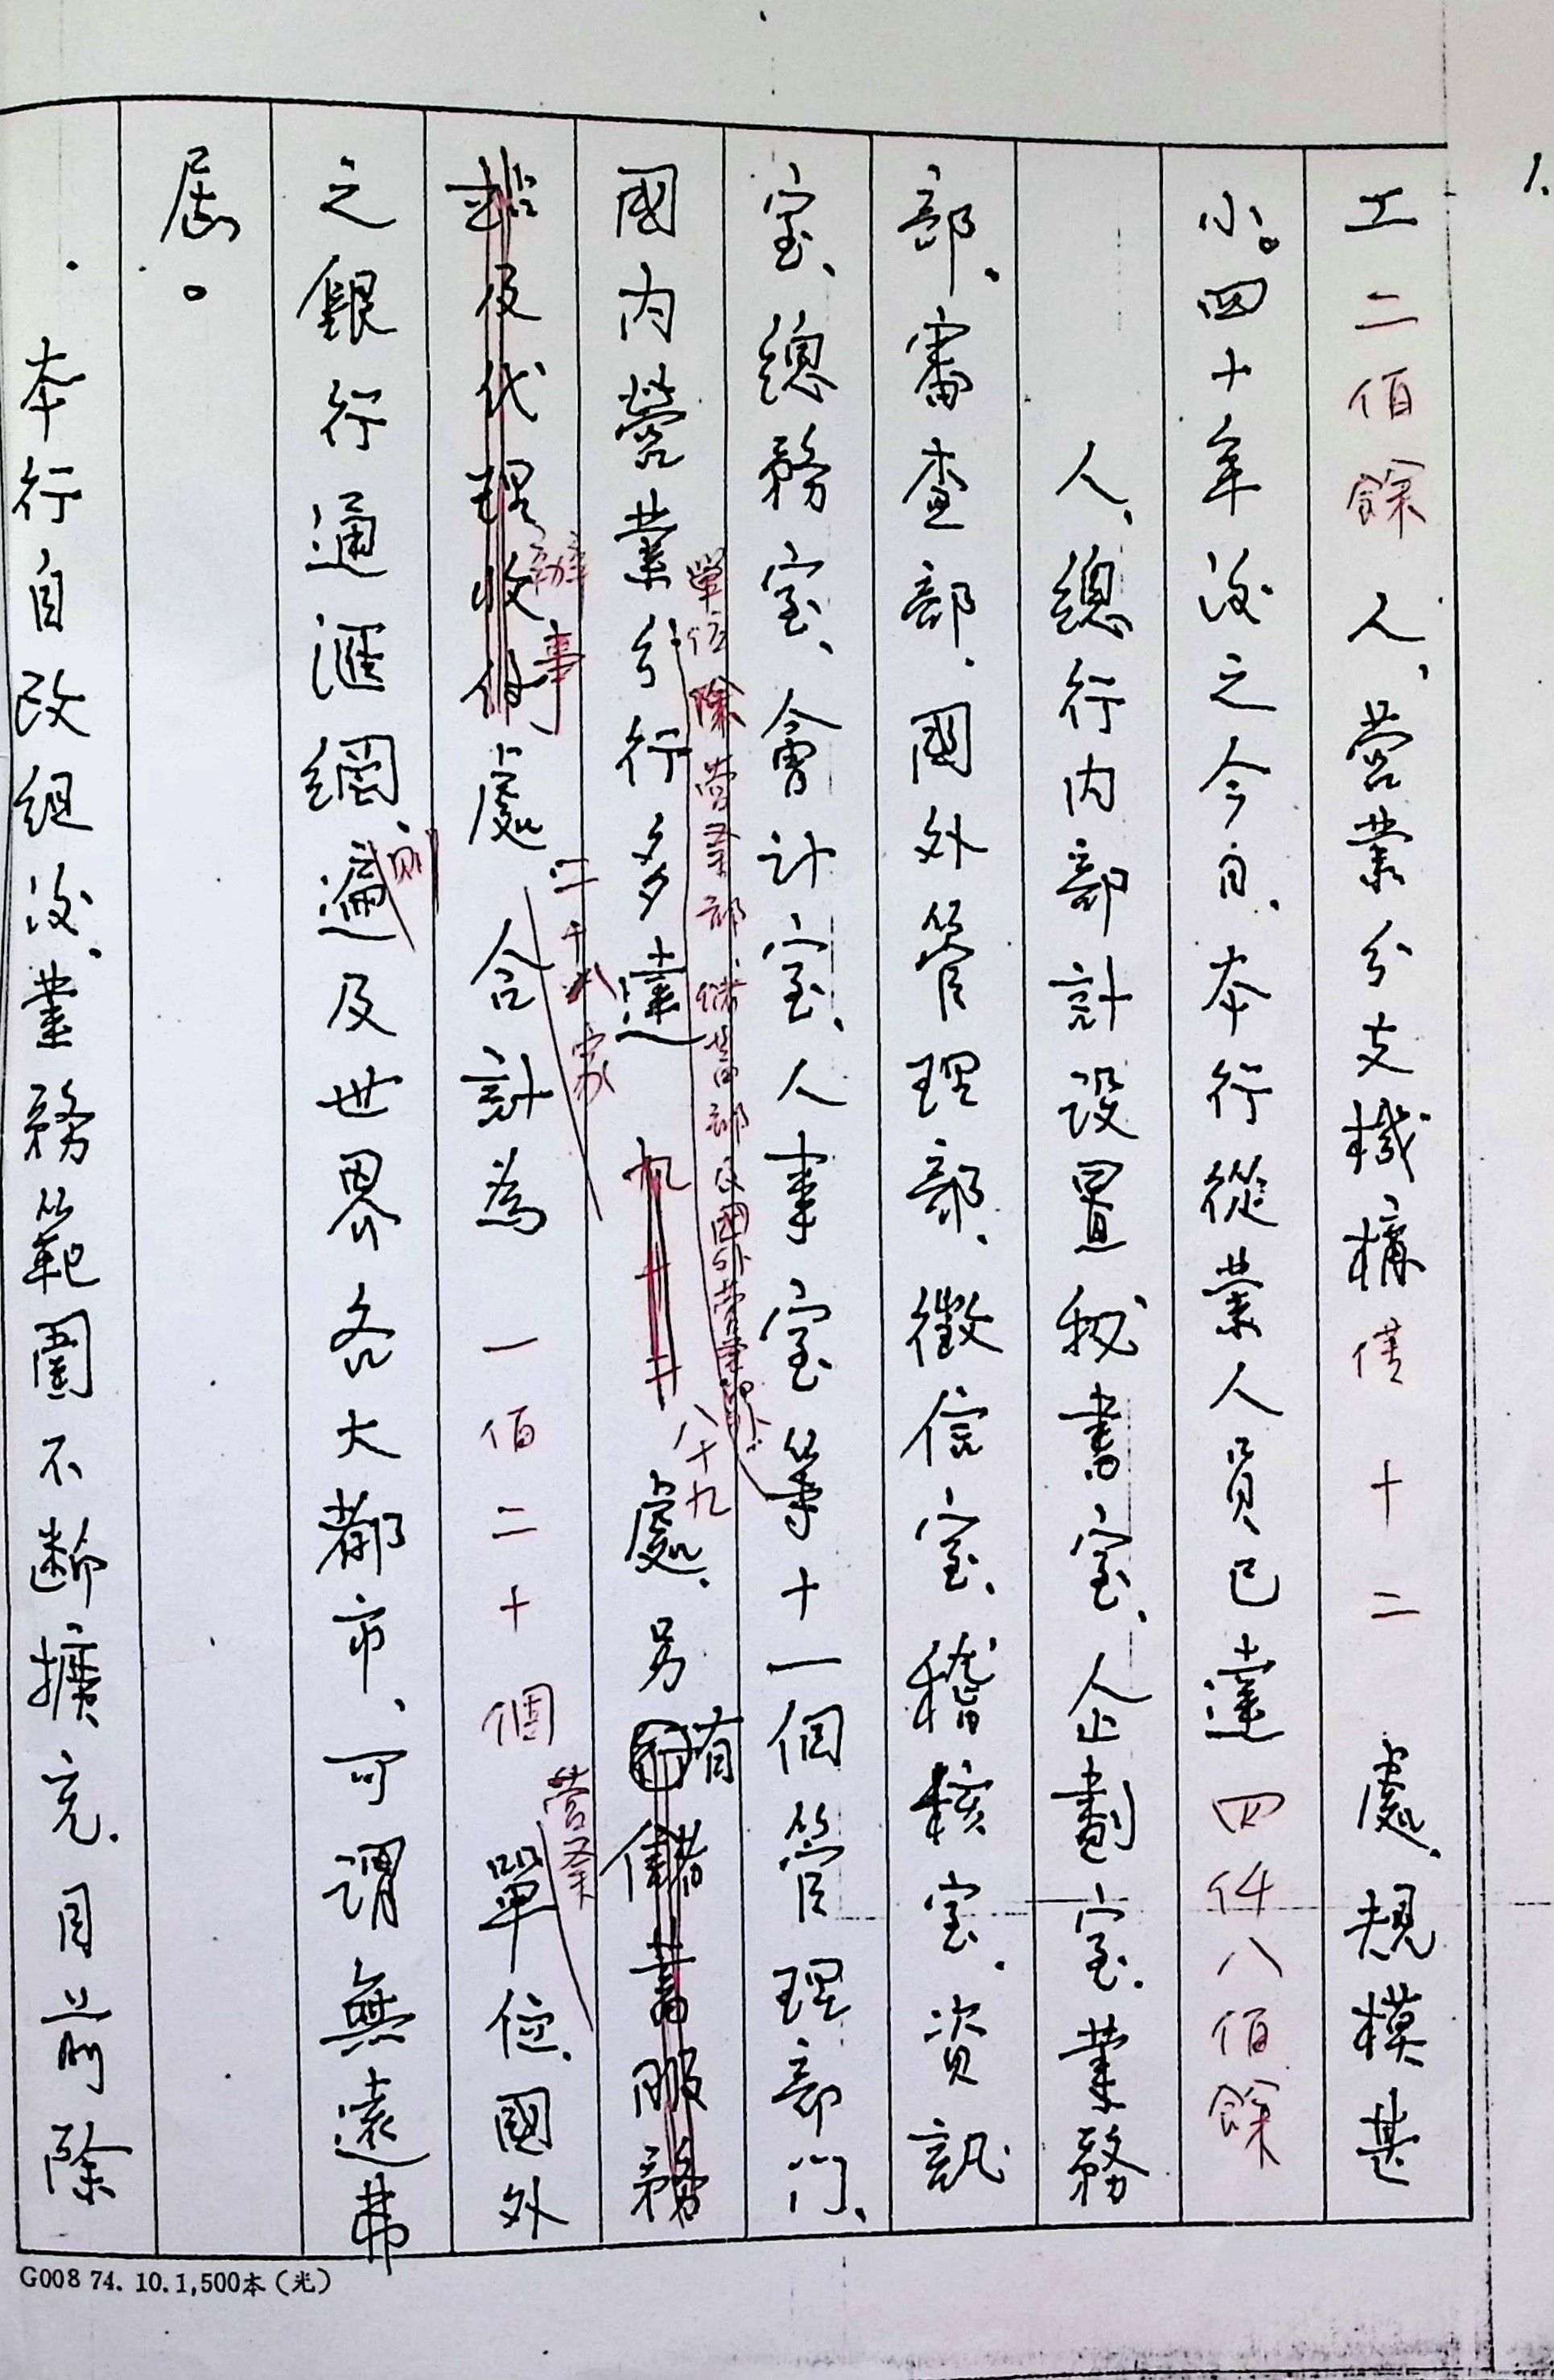 1.
工二佰餘人、營業分支機構僅十二處、規模甚
小。四十年後之今日、本行從業人員已達四仟八佰餘
人、總行內部計設置秘書室、企劃室、業務
部、審查部、國外管理部、徵信室、稽核室、資訊
室、總務室、會計室、人事室等十一個管理部門、
單位除營業部儲蓄部及國外營業部外
國內營業分行多達九十二八十九處、另有儲蓄服務
站及代理收付處辦事二十八家合計為一佰二十個營業單位、國外
之銀行通匯網、則遍及世界各大都市、可謂無遠弗
屆。
本行自改組後、業務範圍不斷擴充、目前除
G008 74. 10. 1,500本（光）